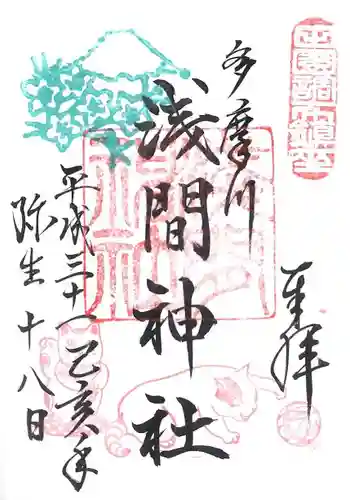 多摩川
浅間神社
奉拝
平成三十一乙亥年
弥生十八日